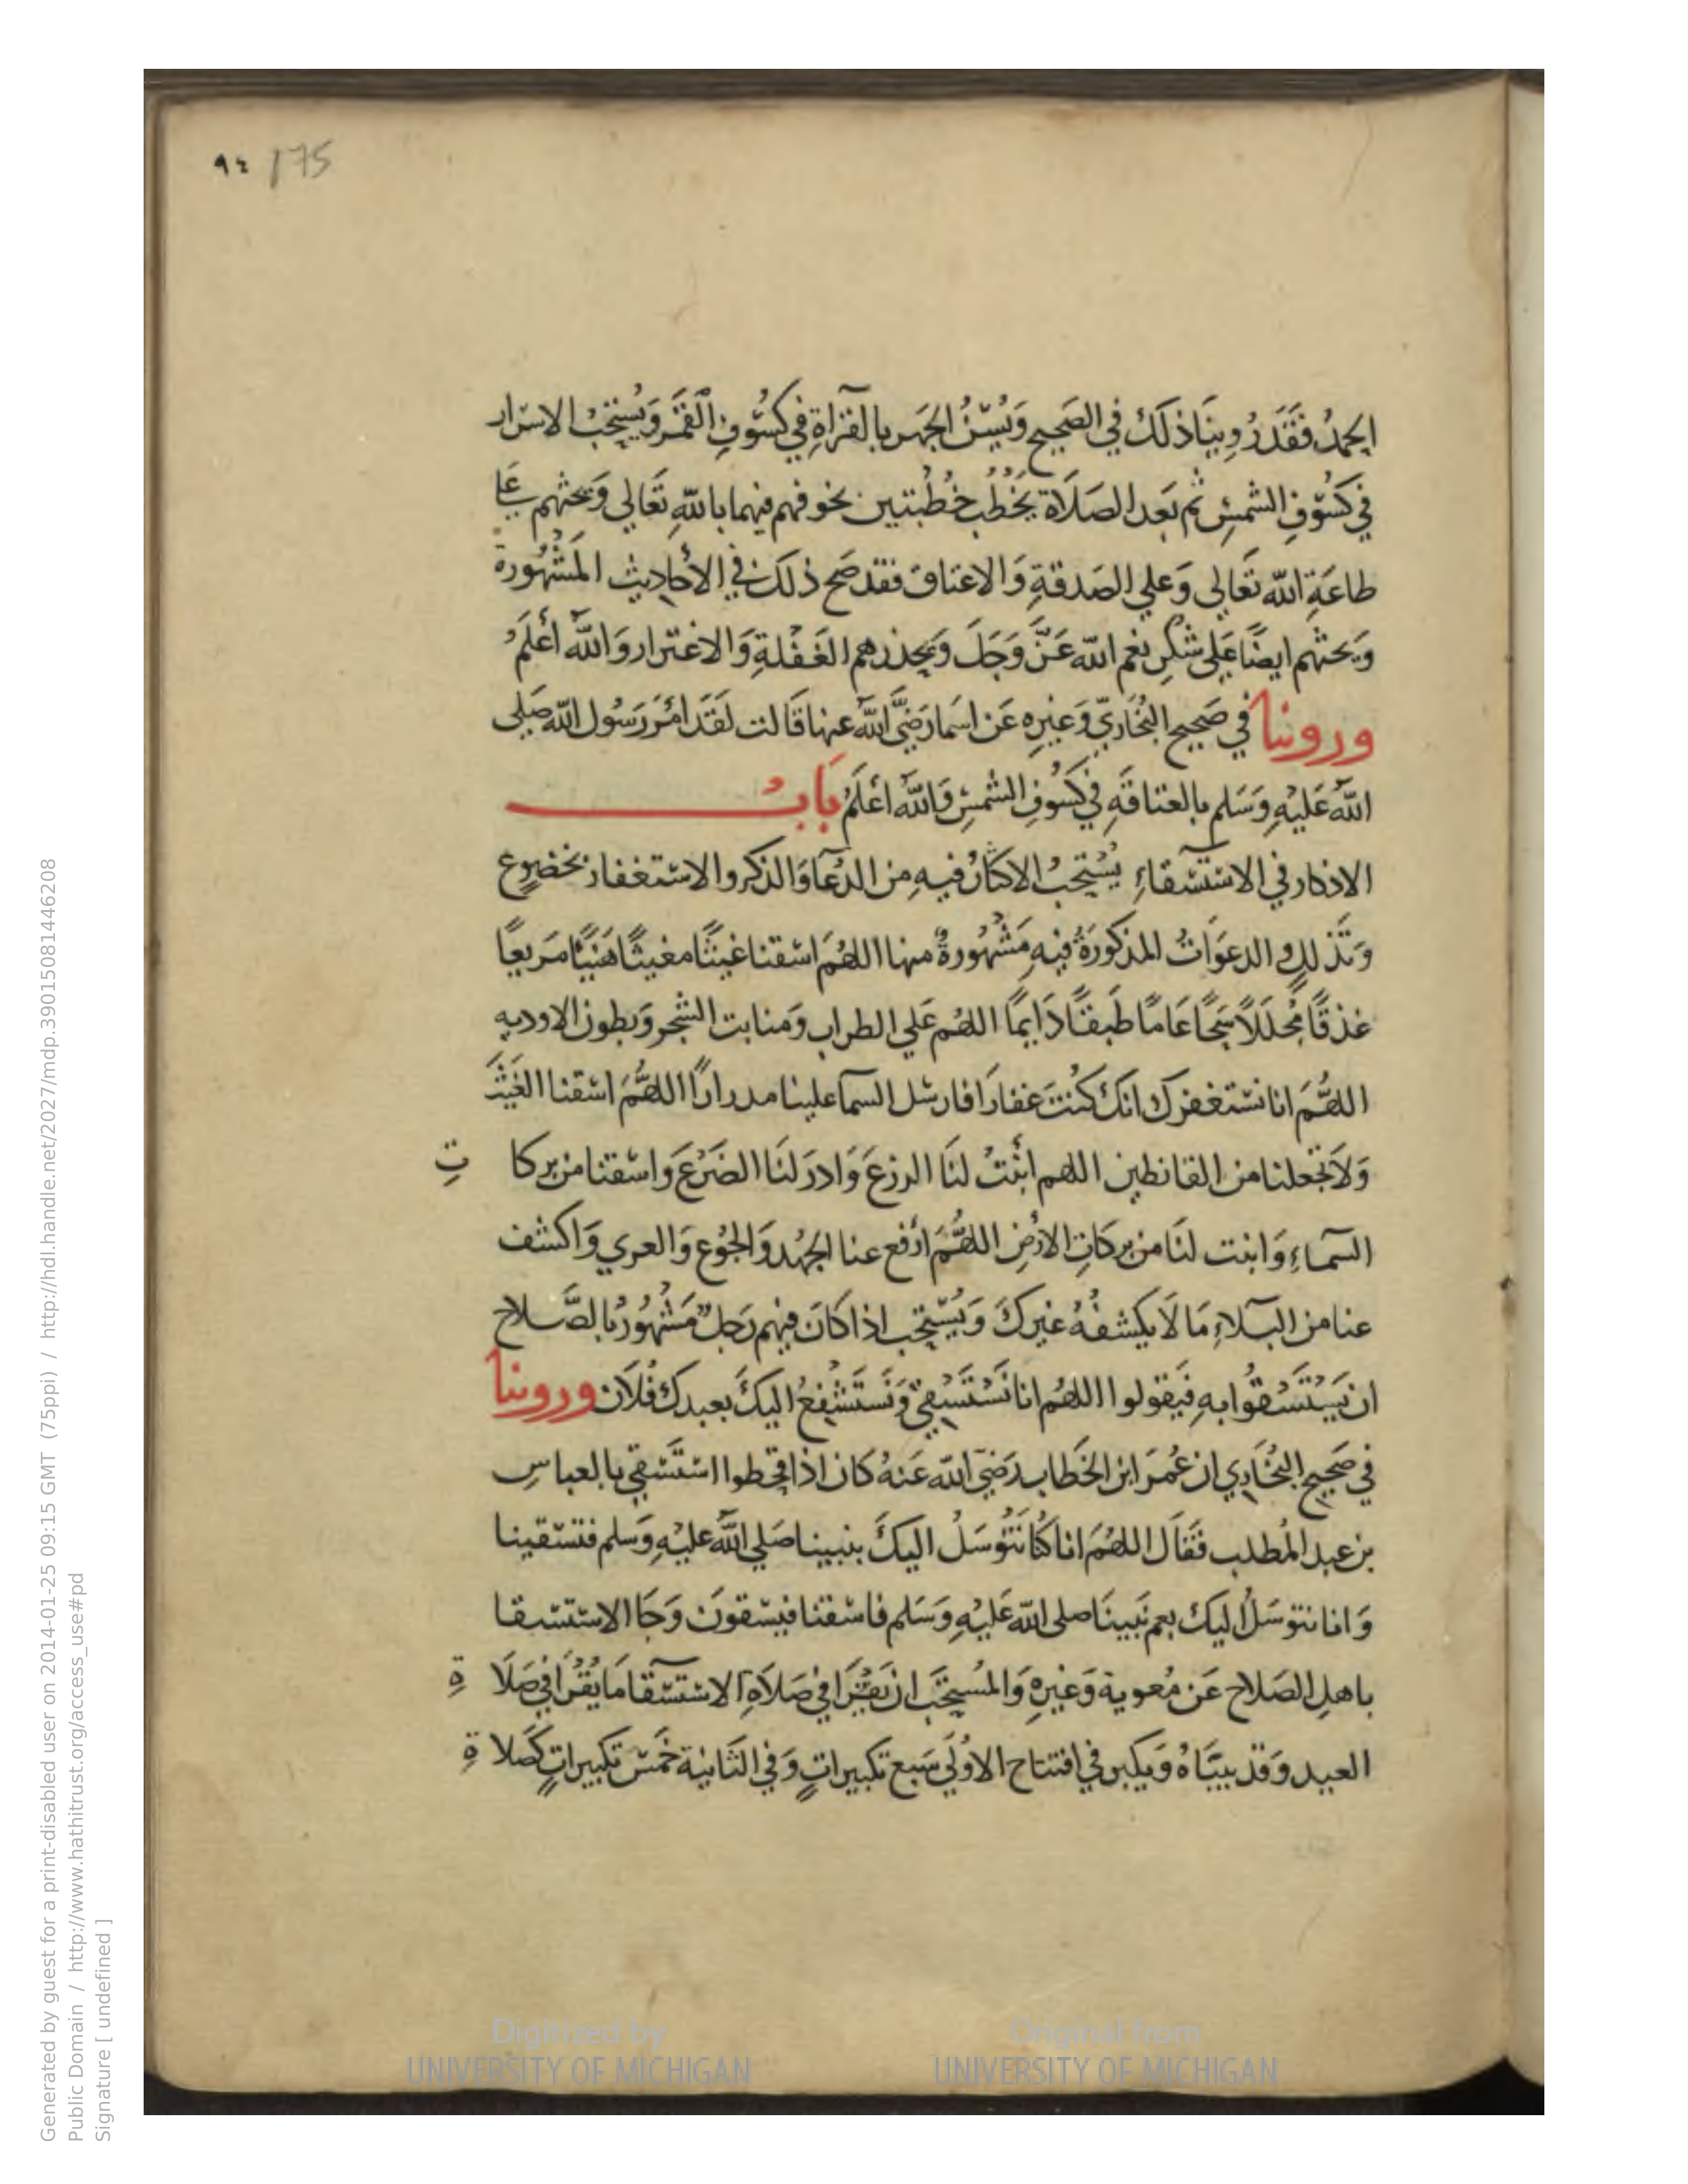 ٩٤ 175
الحمدُ فقَدَ رُوِينَا ذلَكَ في الصَحِيح وَيُسَنُ الجَهَر بالقرآاةِ في كسُوفِ القَمَر وَيُسْتَحَبُ الاسَرار
في كسُوفِ الشمسِ ثم بَعدَ الصَلَاة يَخْطُب خُطْبتين يخوفهم فيهما باللّهِ تعَالى وَيَحثهم عَلي
طاعَةِ اللّه تعَالى وَعلي الصَدقةِ وَالاعتاق فقد صَح ذلكَ في الأحاديث المَشْهُورة
وَيَحثهم ايضًا عَلى شكرِ نعم اللّه عَزَّ وَجَلَ وَيحذرهم الغَفْلةِ وَالاغترار وَاللّهُ أعْلَمُ
وروينا في صَحِيح البُخَاريّ وَغيرِه عَن اسَما رَضيَّ اللّه عنها قَالت لقَدَ امَرَ رَسُول اللّه صَلى
اللّهُ عَليْهِ وَسَلم بالعتاقَهِ في كسُوفِ الشمسِ وَاللّهُ اعْلَمُ بَابُ
الاذكار في الاسْتسْقاءِ يُسْتحبُ الاكثارُ فيهِ من الدُعَآ وَالذكر والاستغفار بخضوعٍ
وَتَذللٍ والدعوَاتُ المذكورَةُ فيهِ مَشْهُورةٌ منها اللهُمَ اسْقنا غيثًا مغيثًا هَنيًّا مَريعًا
غذقًا مُجللًا سَحًا عَامًا طبقًا دَايمًا اللهُم عَلي الطراب وَمنابت الشجر وَبطون الاوديه
اللهُّمَ انا نستغفرك انكَ كنْتَ غفارًا فارسَل السَما علينا مدرارًا اللهُّمَ اسْقنا الغَيْثَ
وَلَا تجْعلنا من القانطين اللهم انْبتْ لنَا الرزعَ وَادرَ لنَا الضَرْعَ واسْقنا من بركا تِ
السَماءِ وَانبت لنَا من بركَاتِ الأرْضِ اللهُّمَ ارْفع عنا الجَهْد وَالجُوْعِ وَالعري وَاكشف
عنا من البَلاءِ مَا لَا يكشفُهُ غيرك وَيُسْتحب اذا كَانَ فيهم رَجلٌ مَشْهُورٌ بالصَّلاح
ان يَسْتَسْقُوا بهِ فيَقولوا اللهُم انا نسْتَسْقيْ وَنستَشْفِعُ اليكَ بعبدك فُلَان وروينا
في صَحِيح البُخَاري ان عُمرَ ابن الخَطاب رَضيَ اللّه عَنهُ كان اذا اقحطوا اسْتَسْقي بالعباسِ
بن عبد المُطلب فقَالَ اللهُمَ انا كُنَا نتُوسَلُ اليكَ بنبينا صَلي اللّهُ عليْهِ وَسَلم فتسْقينا
وَانا نتوسَلُ اليك بعم نَبينَا صلى اللّه عَليْهِ وَسَلم فاسْقنا فيسْقونَ وَجَا الاسْتسْقا
باهلِ الصَلاح عَن مُعوية وَغيرِهِ وَالمُسْتحَبَ ان يَقْرَا في صَلَاةِ الاسْتسْقا مَا يُقْرَا في صَلَا ةِ
العيد وَقد بيَناهُ وَيكبر في افتتاح الاوُلَي سَبع تكبيراتٍ وَفي الثَانية خَمْسَ تكبيراتٍ كَصَلا ةِ
Generated by guest for a print-disabled user on 2014-01-25 09:15 GMT (75ppi) / http://hdl.handle.net/2027/mdp.39015081446208
Public Domain / http://www.hathitrust.org/access_use#pd
Signature [ undefined ]
Digitized by
UNIVERSITY OF MICHIGAN
Original from
UNIVERSITY OF MICHIGAN